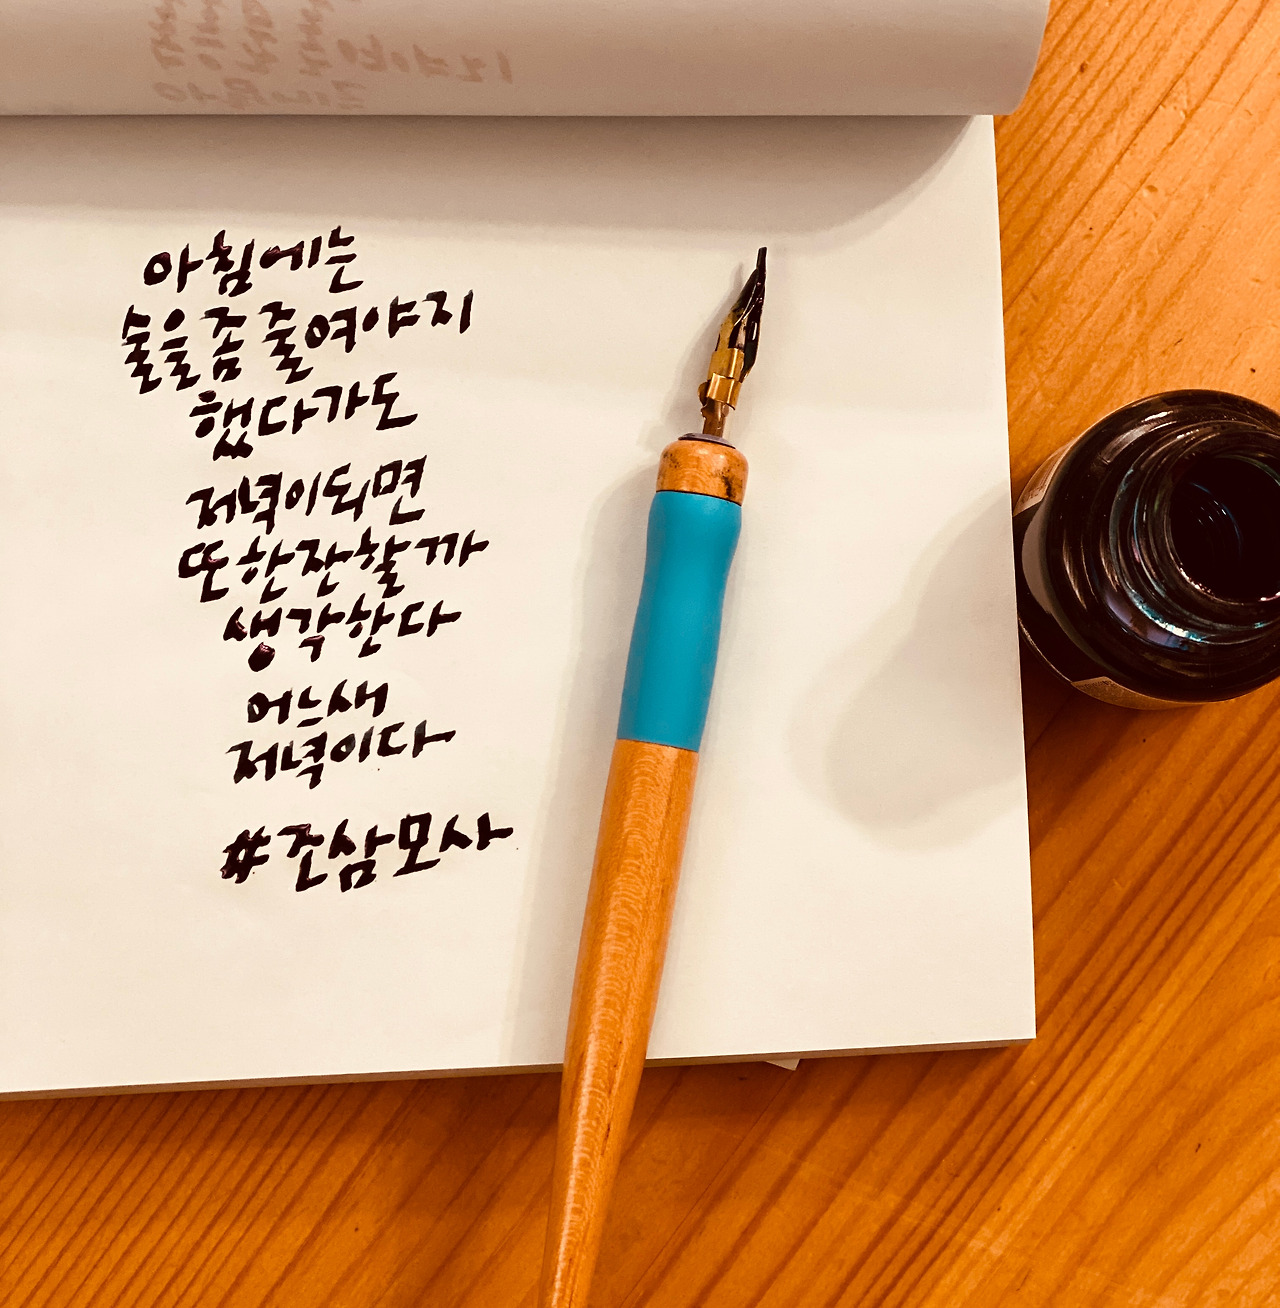 아침에는
술을 좀 줄여야지
했다가도
저녁이되면
또한잔할까
생각한다
어느새
저녁이다
#조삼모사